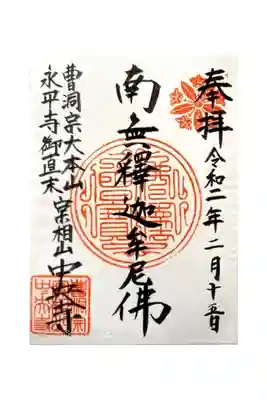 奉拝 令和二年二月十五日
南無釋迦牟尼佛
曹洞宗大本山
永平寺御直末 宗相山
中央寺